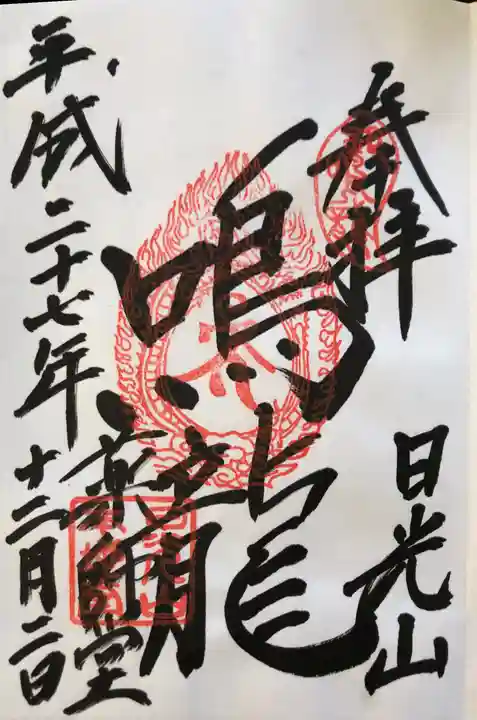 奉拝
日光山
鳴龍
薬師堂
平成二十七年十二月二日